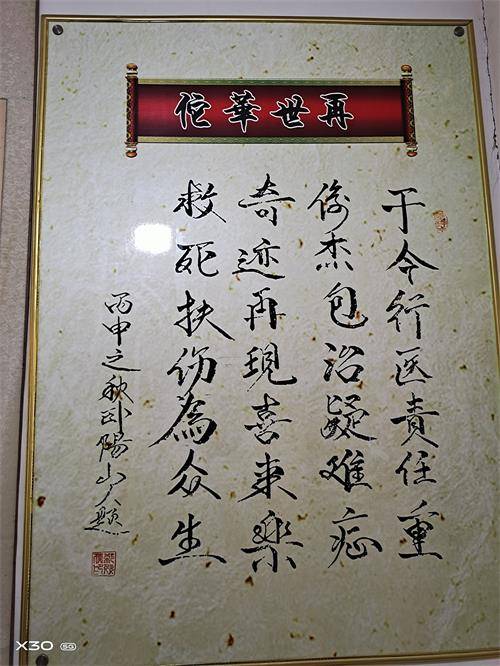 再世華佗
于令行医责任重
俊杰包治疑难症
奇迹再現喜来樂
救死扶伤為众生
丙申之秋卧陽山人題
X30 5G